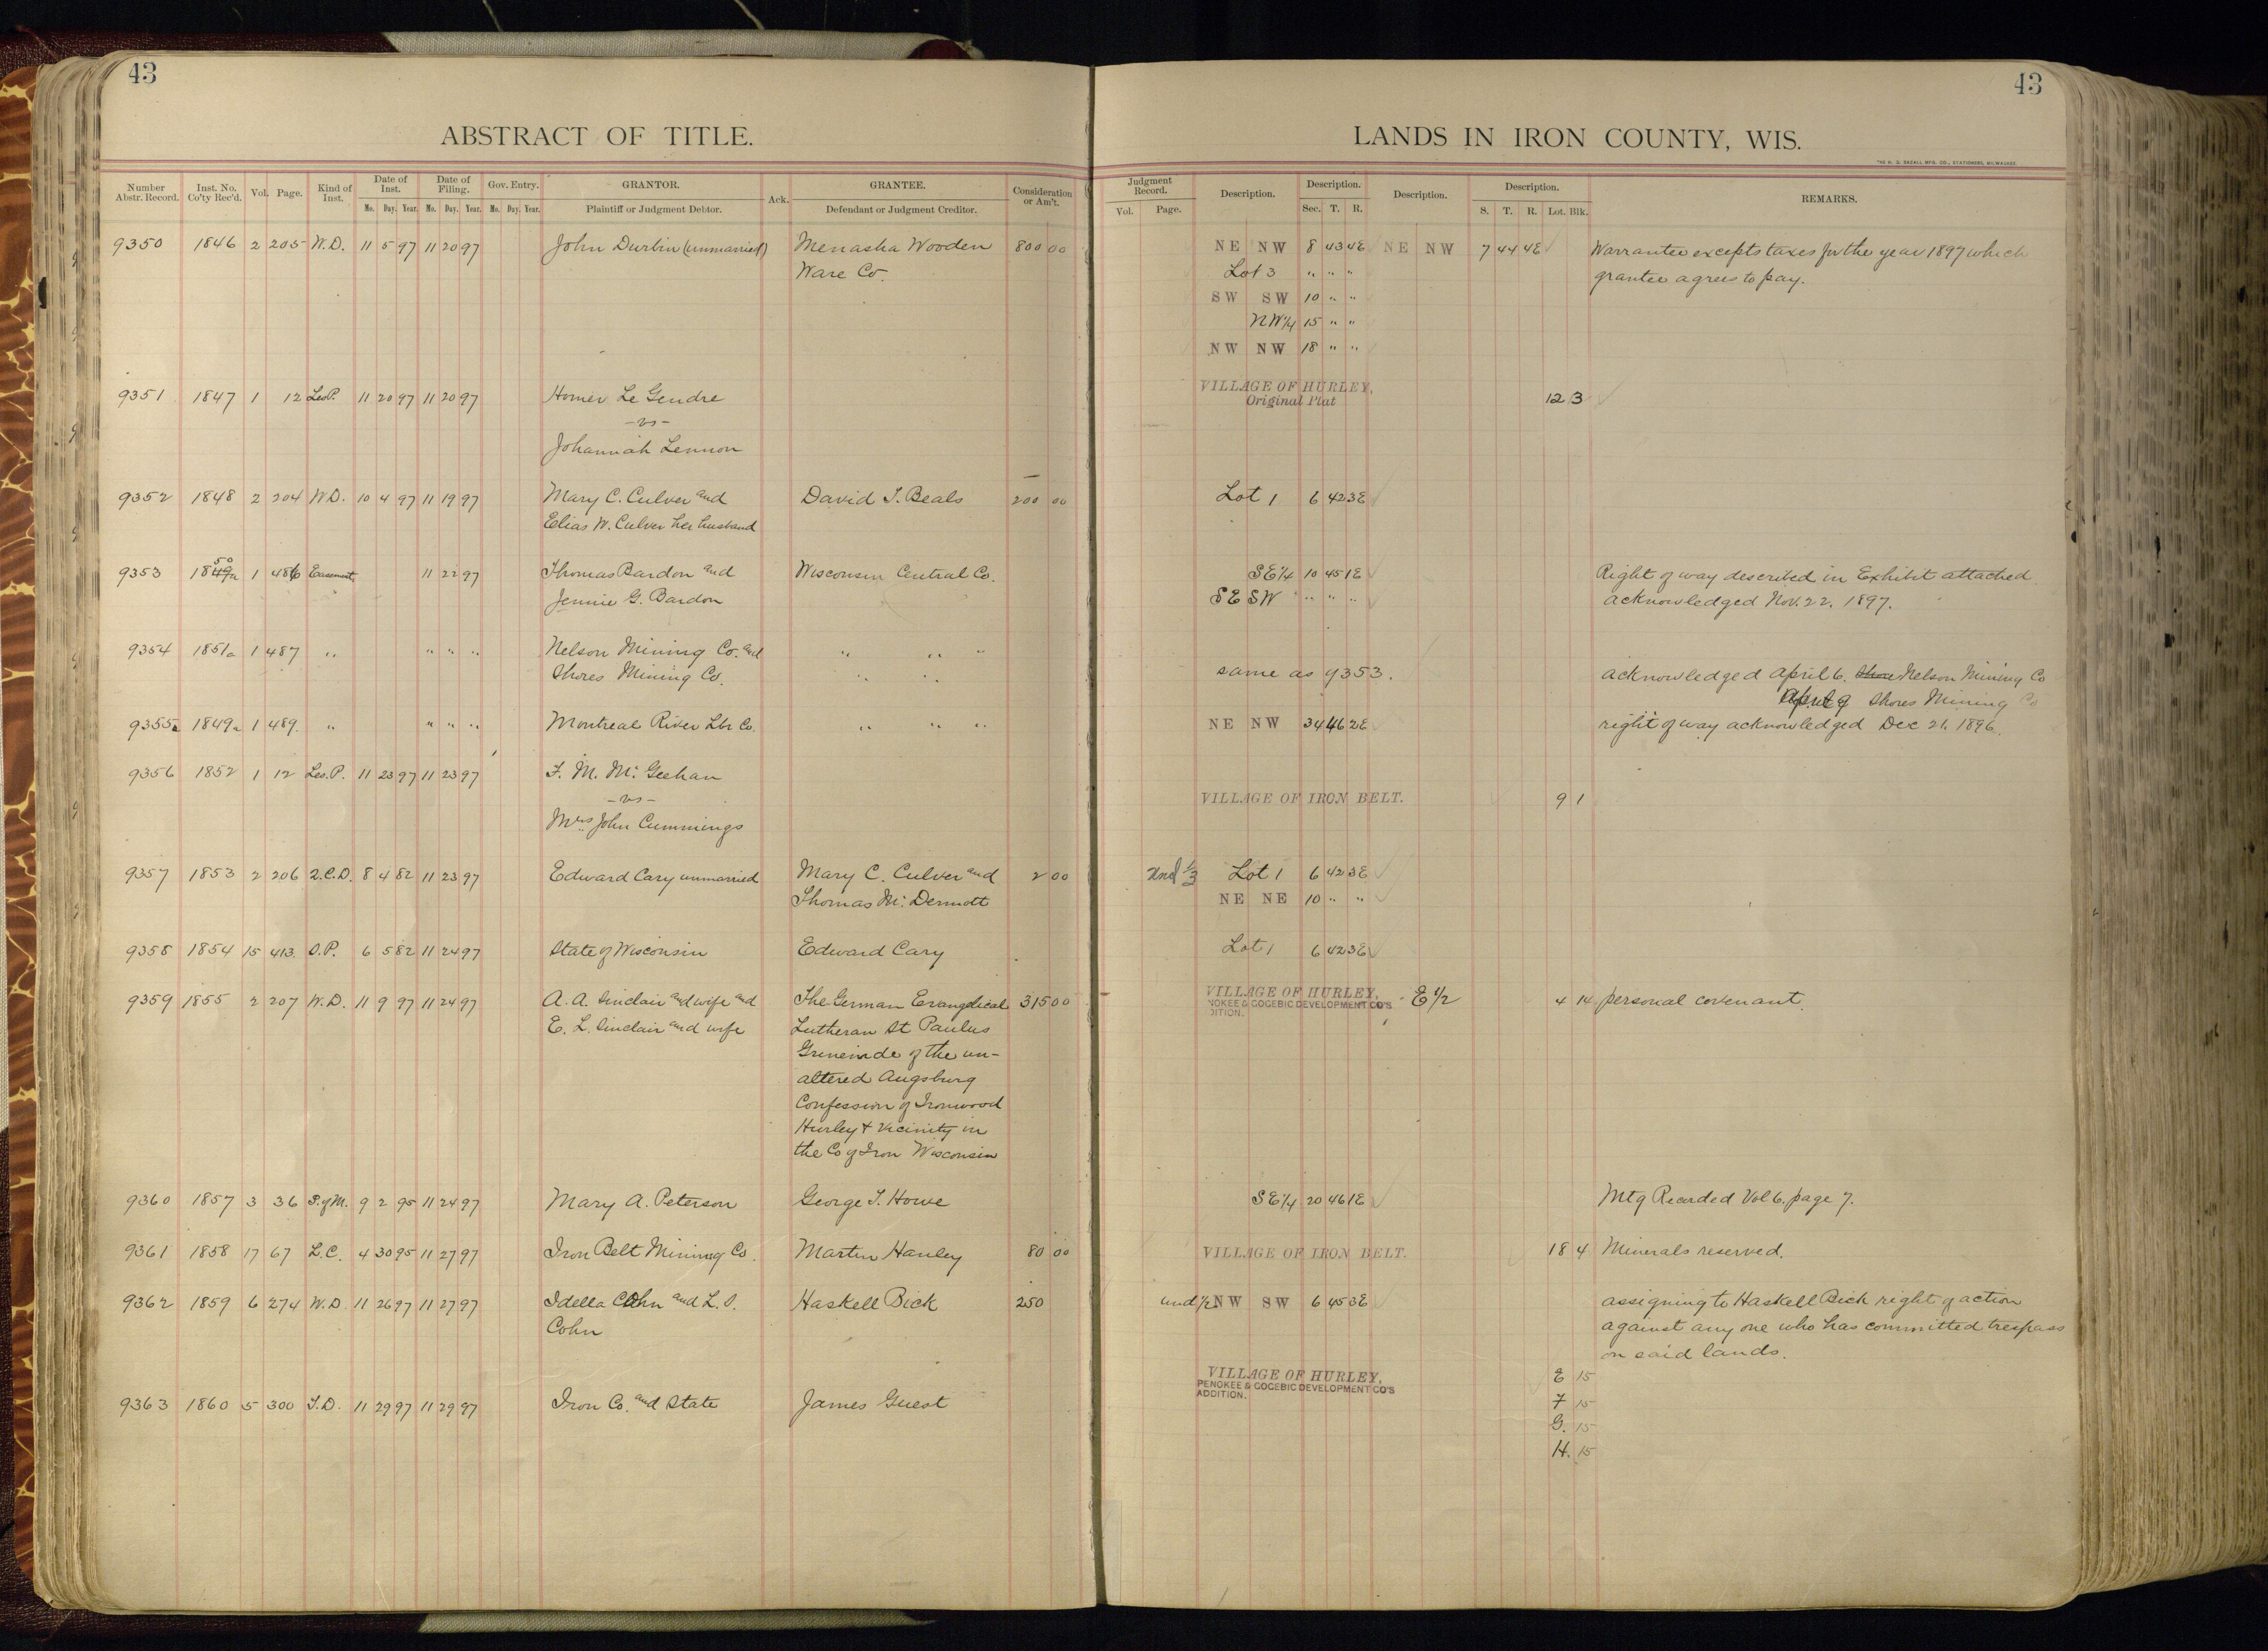 43
43
ABSTRACT OF TITLE.
LANDS IN IRON COUNTY, WIS.
THE H. G. RAZALL MFG. CO., STATIONERS, MILWAUKEE.
Number Abstr. Record. Inst. No. Co'ty Rec'd. Vol. Page. Kind of Inst. Date of Inst. Mo. Day. Year. Date of Filing. Mo. Day. Year. Gov. Entry. Mo. Day. Year. GRANTOR. Plaintiff or Judgment Debtor. Ack. GRANTEE. Defendant or Judgment Creditor. Consideration or Am't.
Judgment Record. Vol. Page. Description. Description. Sec. T. R. Description. Description. S. T. R. Lot. Blk. REMARKS.
9350 1846 2 205 W.D. 11 5 97 11 20 97 John Durbin (unmarried) Menasha Wooden 800 00 NE NW 8 43 4E NE NW 7 44 4E Warrantee excepts taxes for the year 1897 which
Ware Co. Lot 3 " " " grantee agrees to pay.
SW SW 10 " "
NW¼ 15 " "
NW NW 18 " "
VILLAGE OF HURLEY,
9351 1847 1 12 Les P. 11 20 97 11 20 97 Homer Le Gendre Original Plat 12 3
-vs-
Johannah Lennon
9352 1848 2 204 W.D. 10 4 97 11 19 97 Mary C. Culver and David T. Beals 200 00 Lot 1 6 42 3E
Elias W. Culver her husband
9353 1850a 1 486 Easement 11 22 97 Thomas Bardon and Wisconsin Central Co. SE¼ 10 45 1E Right of way described in Exhibit attached
Jennie G. Bardon SE SW " " " acknowledged Nov. 22. 1897.
9354 1851a 1 487 " " " " Nelson Mining Co. and " " "
Shores Mining Co. " " same as 9353. acknowledged April 6. Shore Nelson Mining Co
April 9 Shores Mining Co
9355a 1849a 1 489. " " " " Montreal River Lbr Co. " " " NE NW 34 46 2E right of way acknowledged Dec 21. 1896.
9356 1852 1 12 Les. P. 11 23 97 11 23 97 F. M. McGeehan
-vs- VILLAGE OF IRON BELT. 9 1
Mrs John Cummings
9357 1853 2 206 Q.C.D. 8 4 82 11 23 97 Edward Cary unmarried Mary C. Culver and 2 00 Und ⅓ Lot 1 6 42 3E
Thomas McDermott NE NE 10 " "
9358 1854 15 413. S.P. 6 5 82 11 24 97 State of Wisconsin Edward Cary Lot 1 6 42 3E
9359 1855 2 207 W.D. 11 9 97 11 24 97 A. A. Sinclair and wife and The German Evangelical 315 00 VILLAGE OF HURLEY, E ½ 4 14 personal covenant.
NOKEE & GOGEBIC DEVELOPMENT CO'S
DITION.
E. L. Sinclair and wife Lutheran St Paulus
Grineinde of the un-
altered Augsburg
Confession of Ironwood
Hurley & Vicinity in
the Co of Iron Wisconsin
9360 1857 3 36 S. of M. 9 2 95 11 24 97 Mary A. Peterson George T. Howe SE¼ 20 46 1E Mtg Recorded Vol 6. page 7.
9361 1858 17 67 L.C. 4 30 95 11 27 97 Iron Belt Mining Co. Martin Hanley 80 00 VILLAGE OF IRON BELT. 18 4 Minerals reserved.
9362 1859 6 274 W.D. 11 26 97 11 27 97 Idella Cohn and L. S. Haskell Bick 250 und ½ NW SW 6 45 3E assigning to Haskell Bick right of action
Cohn against any one who has committed trespass
on said lands.
VILLAGE OF HURLEY, E 15
PENOKEE & GOGEBIC DEVELOPMENT CO'S
ADDITION.
9363 1860 5 300 T.D. 11 29 97 11 29 97 Iron Co. and State James Guest F 15
G. 15
H. 15